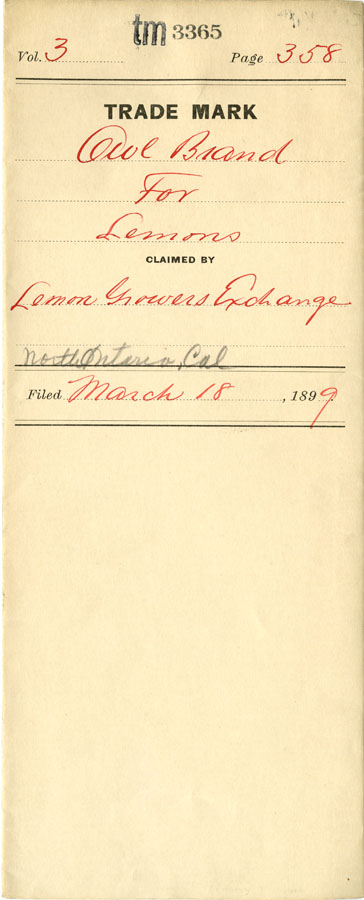 tm 3365
Vol. 3 Page 358
TRADE MARK
Owl Brand
For
Lemons
CLAIMED BY
Lemon Growers Exchange
North Ontario, Cal
Filed March 18, 1899